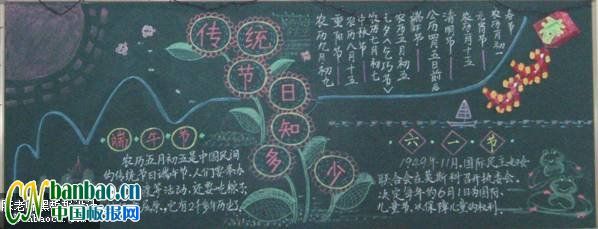 传统节日知多少
春节
农历正月初一
元宵节
农历正月十五
清明节
公历四月五日前后
端午节
农历五月初五
七夕(乞巧节)
农历七月初七
中秋节
农历八月十五
重阳节
农历九月初
端午节
农历五月初五是中国民间
的传统节日端午节,人们要举办
等活动,还要吃粽子
屈原,它有2千多年历史
六一节
1949年11月,国际民主妇女
联合会在莫斯科召开执委会,
决定每年的6月1日为国际
儿童节,以保障儿童的权利.
CNbanbao.cn
中国板报网